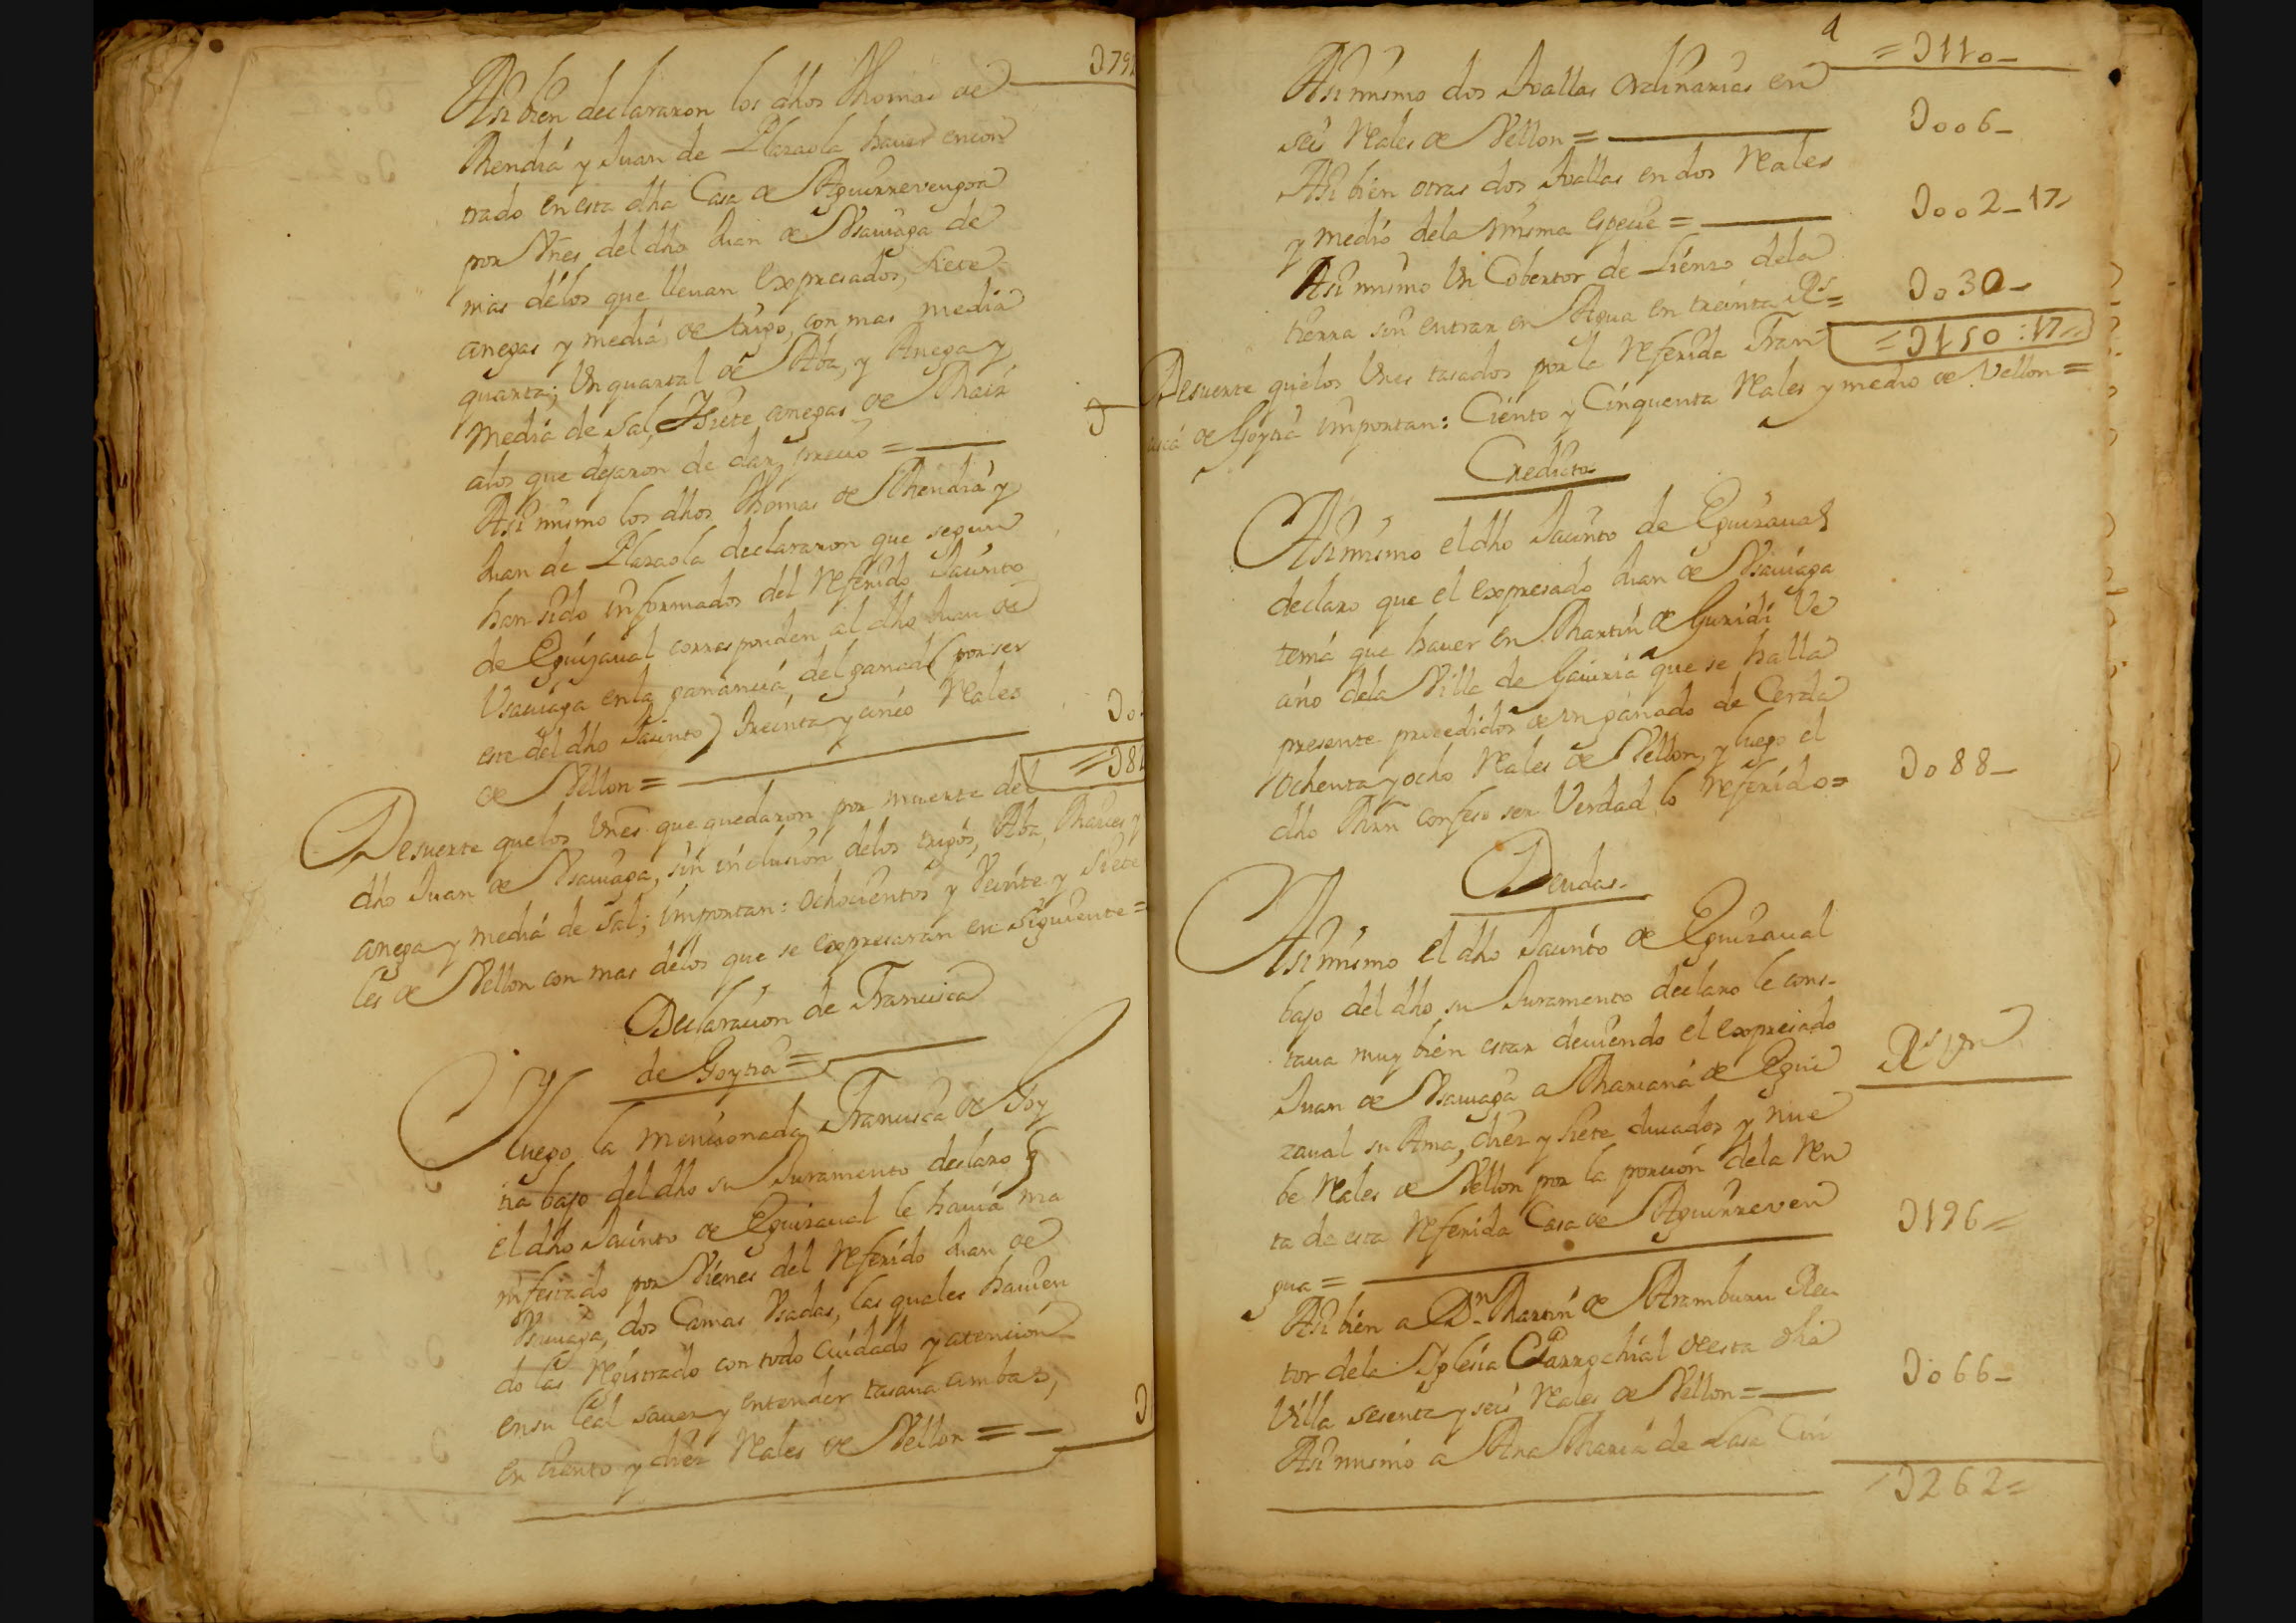 Asi bien declararon los dhos Thomas de
Mendiá y Juan de Plazaola hauer encon
trado en esta dha Casa de Aguirrevengoa
por Vnes del dho Juan de Vsauiaga de
mas délos que lleuan expresados, siete
anegas y mediá de trigo, con mas mediá
quarta; Un quartal de Aba, y Anega y
mediá de sal, y siete anegas de Maiz
alos que dejaron de dar precio =
Asi mismo los dhos Thomas de Mendiá y
Juan de Plazaola declararon que segun
han sido informados del Referido Jacinto
de Eguizaual corresponden al dho Juan de
Vsauiaga en la gananciá del ganado (por ser
este del dho Jacinto) treinta y cinco Reales
de Vellon =
Desuerte quelos Vnes que quedaron por muerte del
dho Juan de Vsauiaga, sin inclusion delos trigos, Aba, Maices y
anega y mediá de sal; importan: ochocientos y Veinte y Siete
les de Vellon con mas délos que se expresarán en siguiente =
Declaracion de Francisca
de Goytia =
Y luego la mencionada Francisca de Goy
tia bajo del dho su Juramento declaro q
el dho Jacinto de Eguizaual le hauiá ma
nifestado por Vienes del Referido Juan de
Vsauiaga, dos Camas Vsadas, las quales hauien
do las Registrado con todo cuidado y atencion
en su leal sauer y entender tasaua ambas,
en ciento y diez Reales de Vellon =
= 0110 -
Asi mismo dos Toallas ordinarias en
seis Reales de Vellon = 0006 -
Asi bien otras dos Toallas en dos Reales
y medio dela misma especie = 0002 - 17
Asi mismo Un Cobertor de Lienzo dela
tierra sin entrar en Agua en treinta Rs = 0030 -
= 0150 : 17
Desuerte quelos Vnes tasados por la Referida Fran
cisca de Goytia importan: Ciento y Cinquenta Reales y medio de Vellon =
Creditos
Asi mismo el dho Jacinto de Eguizaual
declaro que el expresado Juan de Vsauiaga
teniá que hauer en Martin de Guridi Ve
cino dela Villa de Gauiria que se halla
presente procedidos de un ganado de Cerda
ochenta y ocho Reales de Vellon, y luego el
dho Mrn confeso ser Verdad lo Referido = 0088 -
Deudas
Asi mismo el dho Jacinto de Eguizaual
bajo del dho su Juramento declaro le cons-
taua muy bien estar deuiendo el expresado
Juan de Vsauiaga a Mariana de Egui Rs Vn
zaual su Ama, diez y siete ducados y nue
be Reales de Vellon por la porcion dela Ren
ta de esta Referida Casa de Aguirreven 0196 =
goa =
Asi bien a Dn Martin de Aramburu Rec
tor dela Iglesia Parrochial de esta dha
Villa sesenta y seis Reales de Vellon = 0066 -
Asi mismo á Ana Mariá de Lasa Cin
0262 =